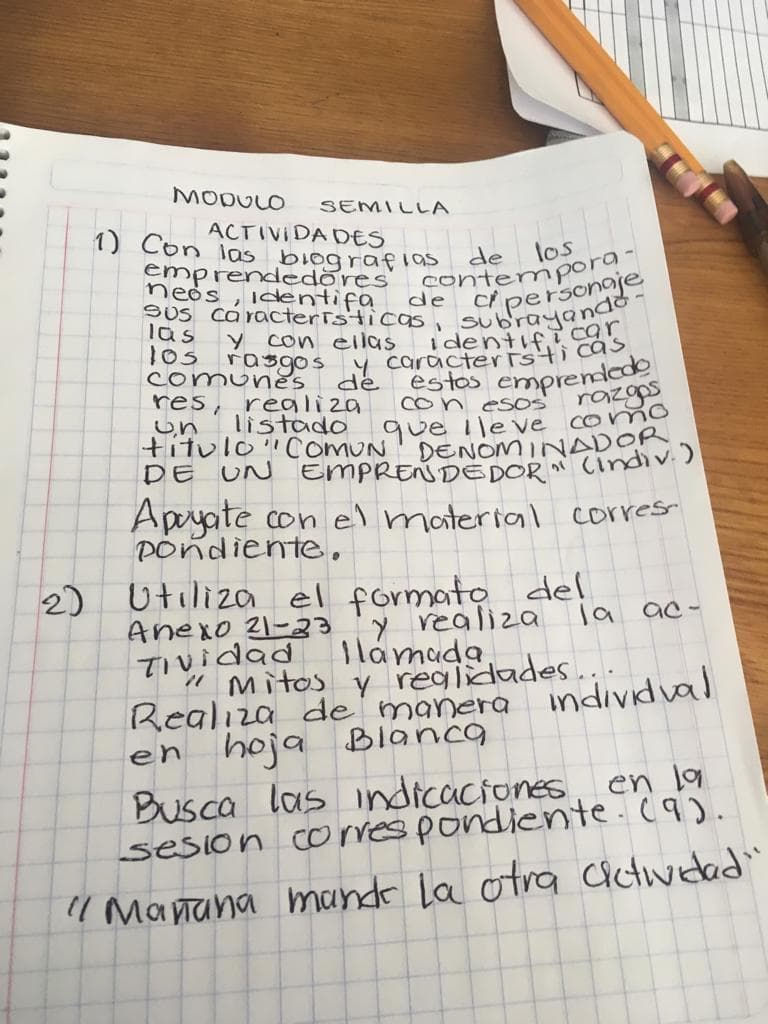 MODULO SEMILLA
ACTIVIDADES
1) Con las biografias de los
emprendedores contempora-
neos, identifa de c/personaje
sus características, subrayando-
las y con ellas identificar
los rasgos y características
comunes de estos emprendedo
res, realiza con esos razgos
un listado que lleve como
titulo "COMUN DENOMINADOR
DE UN EMPRENDEDOR" (indiv.)
Apoyate con el material corres-
pondiente.
2) Utiliza el formato del
Anexo 21-23 y realiza la ac-
tividad llamada
" Mitos y realidades...
Realiza de manera individual
en hoja Blanca
Busca las indicaciones en la
sesion correspondiente. (9).
"Mañana mando la otra actividad"